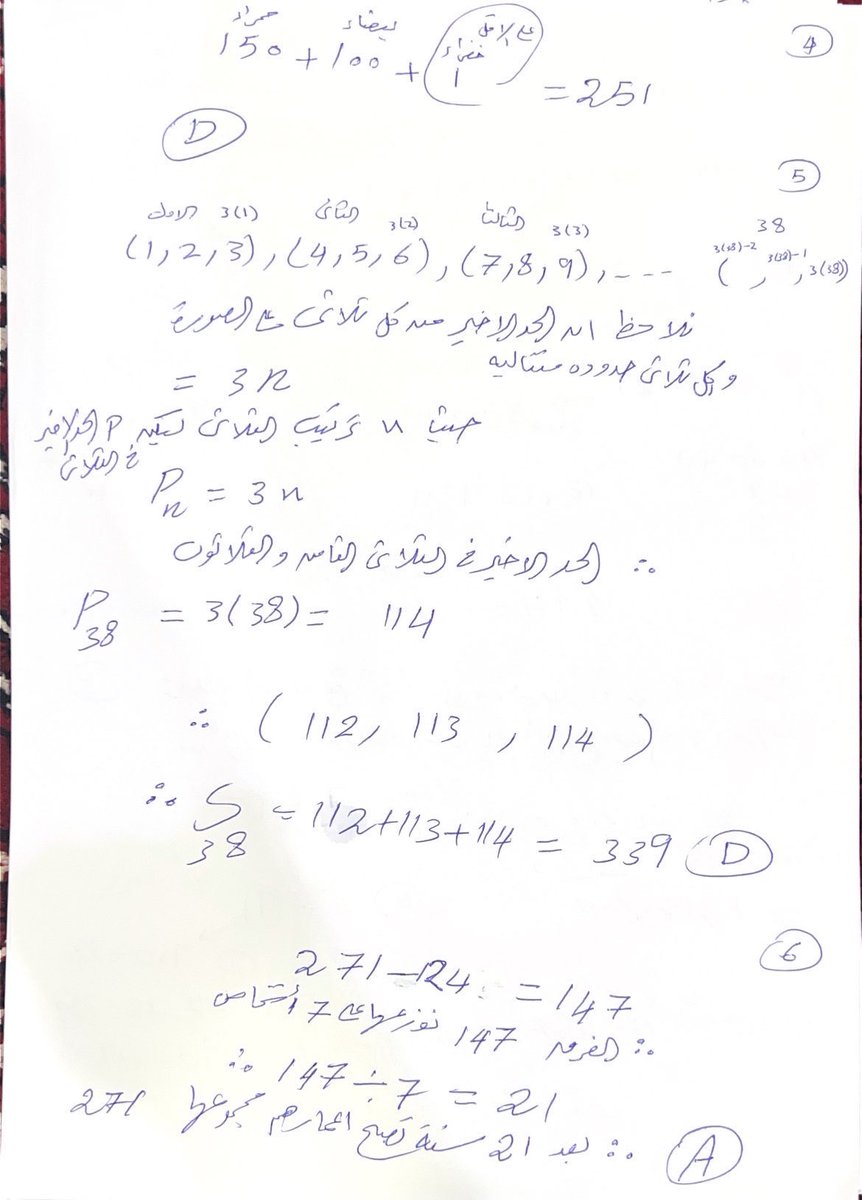 4
حمراء بيضاء على الاقل خضراء
150 + 100 + 1 = 251
D
5
الاول 3(1) الثاني 3(2) الثالث 3(3) 38
(1,2,3), (4,5,6), (7,8,9), ---- (3(38)-2, 3(38)-1, 3(38))
نلاحظ ان الحد الاخير من كل ثلاثي على الصورة
وكل ثلاثي حدوده متتاليه
= 3n
حيث n ترتيب الثلاثي ليكن P الحد الاخير
في الثلاثي
Pn = 3n
∴ الحد الاخير في الثلاثي الثامن والثلاثون
P38 = 3(38) = 114
∴ (112, 113, 114)
∴ S38 = 112+113+114 = 339 D
6
271-124 = 147
∴ الفرق 147 نوزعها على 7 أشخاص
∴ 147 ÷ 7 = 21
∴ بعد 21 سنة تصبح اعمارهم مجموعها 271
A